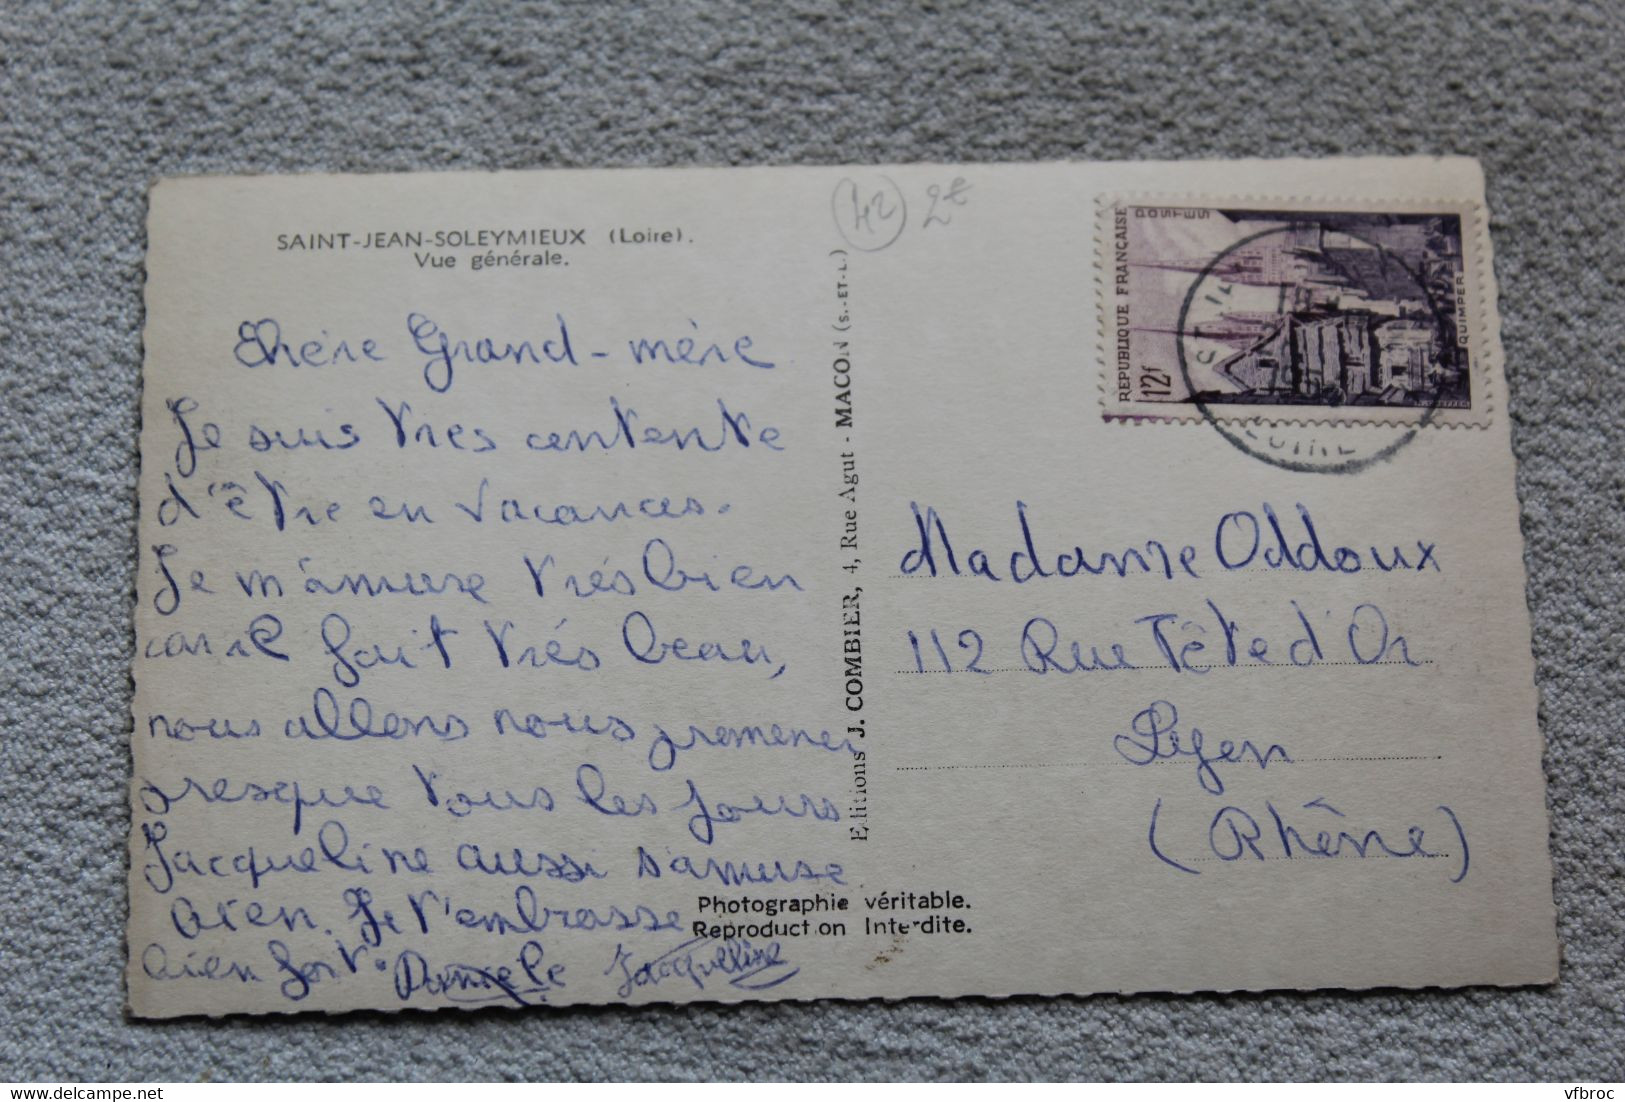 SAINT-JEAN-SOLEYMIEUX (Loire).
Vue générale.
Chère Grand-mère
Je suis très contente
d'être en vacances.
Je m'amuse très bien
car il fait très beau,
nous allons nous promener
presque tous les jours
Jacqueline aussi s'amuse
bien. Je t'embrasse
bien fort. Jacqueline
Editions J. COMBIER, 4, Rue Agut - MACON (S.-ET-L.)
Photographie véritable.
Reproduct on Interdite.
42 2€
REPUBLIQUE FRANÇAISE
POSTES
12f
QUIMPER
LOIRE
Madame Oddoux
112 Rue Tête d'Or
Lyon
(Rhône)
delcampe.net
vfbroc